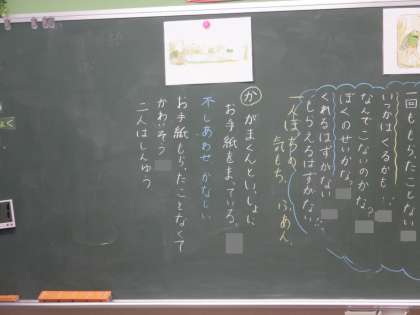 一回ももらったことない
いつかはくるかも…
なんでこないのかな。
ぼくのせいかな？
くれるはずがない
もらえるはずがない…
一人ぼっちの気もち ふあん
か がまくんといっしょに
お手紙をまっている。
不しあわせ かなしい
お手紙もらったことなくて
かわいそう
二人はしんゆう